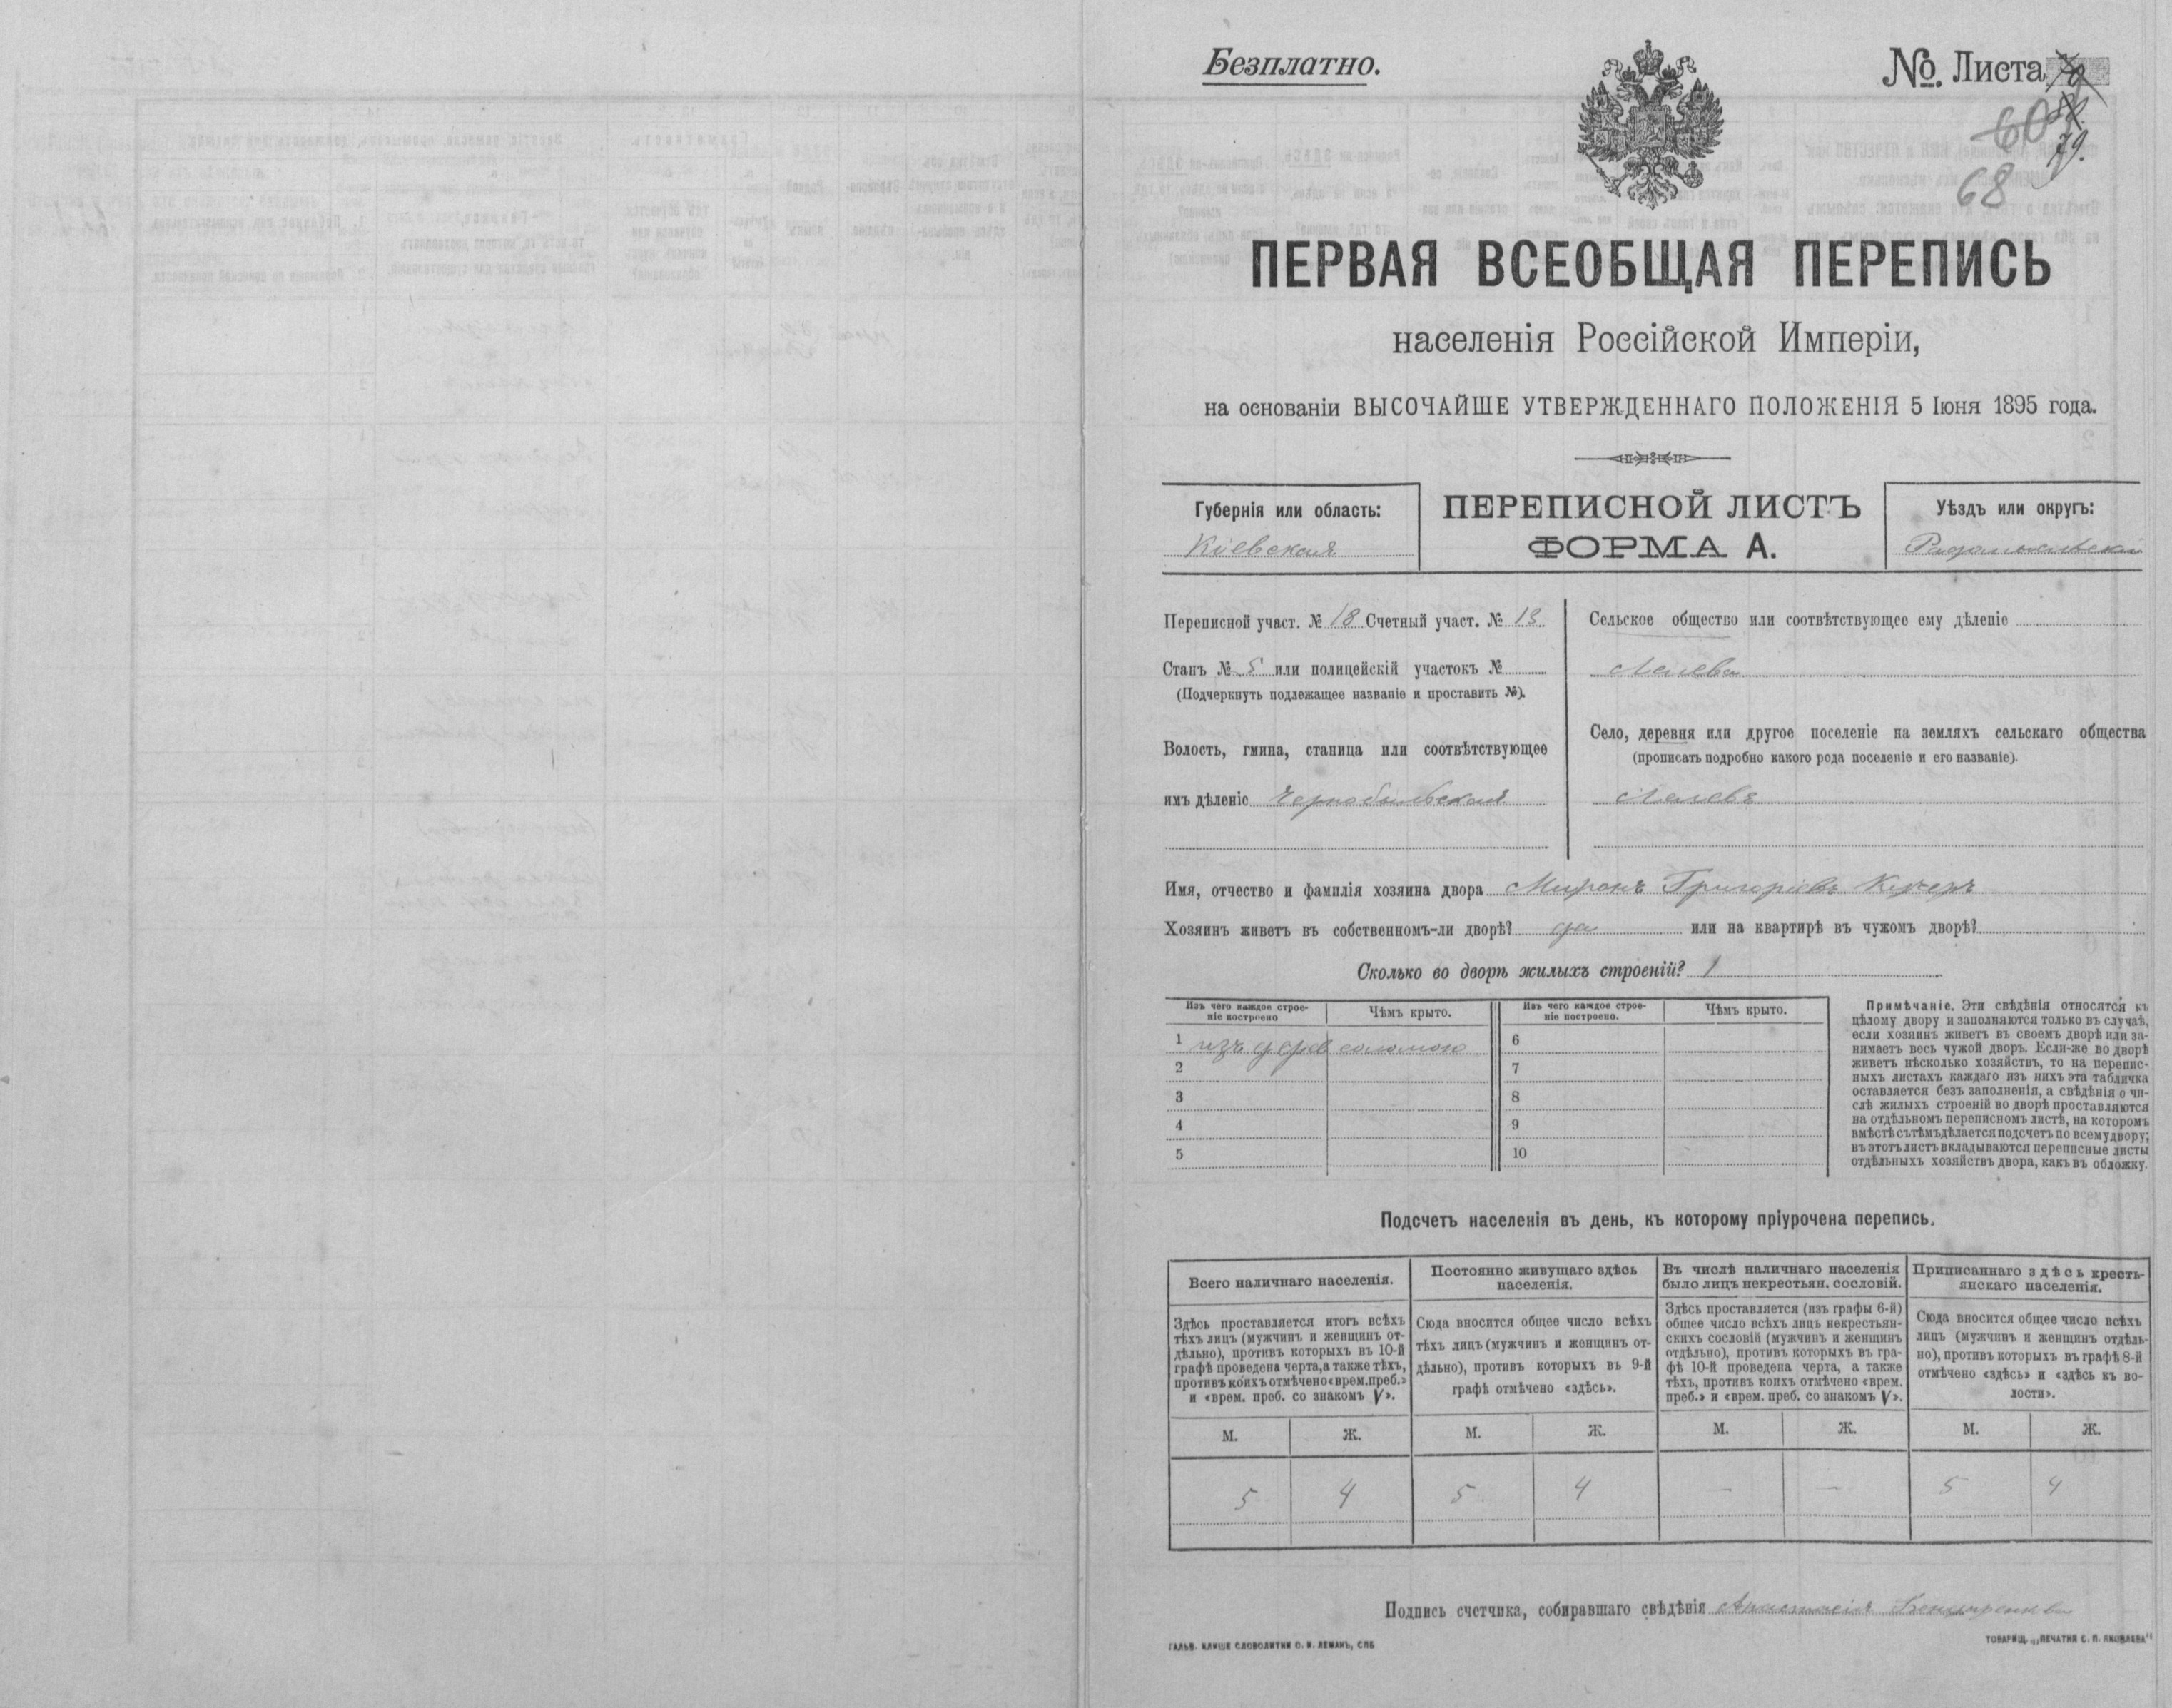 Безплатно.
№ Листа 70
60 58.
79.
68
ПЕРВАЯ ВСЕОБЩАЯ ПЕРЕПИСЬ
населенія Россійской Имперіи,
на основаніи ВЫСОЧАЙШЕ УТВЕРЖДЕННАГО ПОЛОЖЕНІЯ 5 Іюня 1895 года.
Губернія или область:
Кіевская
ПЕРЕПИСНОЙ ЛИСТЪ
ФОРМА А.
Уѣздъ или округъ:
Радомысльскій
Переписной участ. № 18 Счетный участ. № 13
Станъ № 5 или полицейскій участокъ №
(Подчеркнуть подлежащее названіе и проставить №).
Волость, гмина, станица или соотвѣтствующее
имъ дѣленіе Чернобыльская
Сельское общество или соотвѣтствующее ему дѣленіе
Лелевъ
Село, деревня или другое поселеніе на земляхъ сельскаго общества
(прописать подробно какого рода поселеніе и его названіе).
Лелевъ
Имя, отчество и фамилія хозяина двора Миронъ Григоріевъ Кучеръ
Хозяинъ живетъ въ собственномъ-ли дворѣ? да или на квартирѣ въ чужомъ дворѣ?
Сколько во дворѣ жилыхъ строеній? 1
Изъ чего каждое строе-
ніе построено
Чѣмъ крыто.
1 изъ дерев соломою
2
3
4
5
Изъ чего каждое строе-
ніе построено.
Чѣмъ крыто.
6
7
8
9
10
Примѣчаніе. Эти свѣдѣнія относятся къ
цѣлому двору и заполняются только въ случаѣ,
если хозяинъ живетъ въ своемъ дворѣ или за-
нимаетъ весь чужой дворъ. Если-же во дворѣ
живетъ нѣсколько хозяйствъ, то на перепис-
ныхъ листахъ каждаго изъ нихъ эта табличка
оставляется безъ заполненія, а свѣдѣнія о чи-
слѣ жилыхъ строеній во дворѣ проставляются
на отдѣльномъ переписномъ листѣ, на которомъ
вмѣстѣ съ тѣмъ дѣлается подсчетъ по всему двору;
въ этотъ листъ вкладываются переписные листы
отдѣльныхъ хозяйствъ двора, какъ въ обложку.
Подсчетъ населенія въ день, къ которому пріурочена перепись.
Всего наличнаго населенія.
Здѣсь проставляется итогъ всѣхъ
тѣхъ лицъ (мужчинъ и женщинъ от-
дѣльно), противъ которыхъ въ 10-й
графѣ проведена черта, а также тѣхъ,
противъ коихъ отмѣчено «врем. преб.»
и «врем. преб. со знакомъ V».
М. Ж.
5 4
Постоянно живущаго здѣсь
населенія.
Сюда вносится общее число всѣхъ
тѣхъ лицъ (мужчинъ и женщинъ от-
дѣльно), противъ которыхъ въ 9-й
графѣ отмѣчено «здѣсь».
М. Ж.
5 4
Въ числѣ наличнаго населенія
было лицъ некрестьян. сословій.
Здѣсь проставляется (изъ графы 6-й)
общее число всѣхъ лицъ некрестьян-
скихъ сословій (мужчинъ и женщинъ
отдѣльно), противъ которыхъ въ гра-
фѣ 10-й проведена черта, а также
тѣхъ, противъ коихъ отмѣчено «врем.
преб.» и «врем. преб. со знакомъ V».
М. Ж.
– –
Приписаннаго здѣсь кресть-
янскаго населенія.
Сюда вносится общее число всѣхъ
лицъ (мужчинъ и женщинъ отдѣль-
но), противъ которыхъ въ графѣ 8-й
отмѣчено «здѣсь» и «здѣсь къ во-
лости».
М. Ж.
5 4
Подпись счетчика, собиравшаго свѣдѣнія Анастасія
ГАЛЬВ. КЛИШЕ СЛОВОЛИТНИ О. И. ЛЕМАНЪ, СПБ
ТОВАРИЩ. „ПЕЧАТНЯ С. П. ЯКОВЛЕВА"